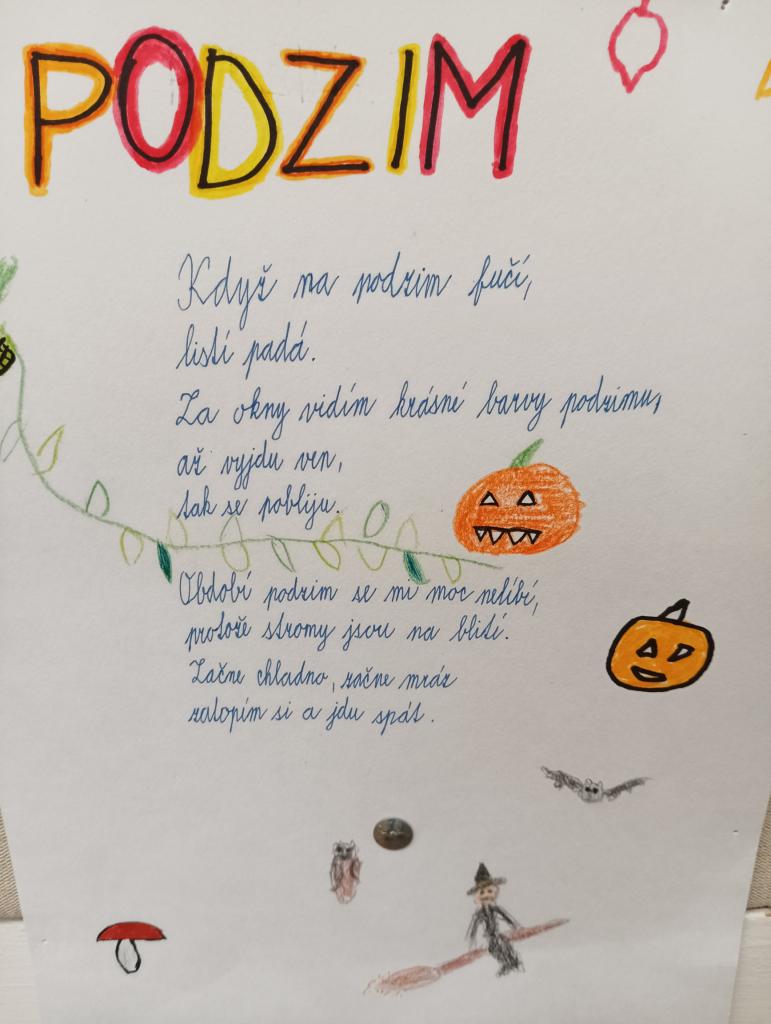 PODZIM
Když na podzim fučí,
listí padá.
Za okny vidím krásné barvy podzimu,
až vyjdu ven,
tak se pobliju.
Období podzim se mi moc nelíbí,
protože stromy jsou na blití.
Začne chladno, začne mráz
zatopím si a jdu spát.